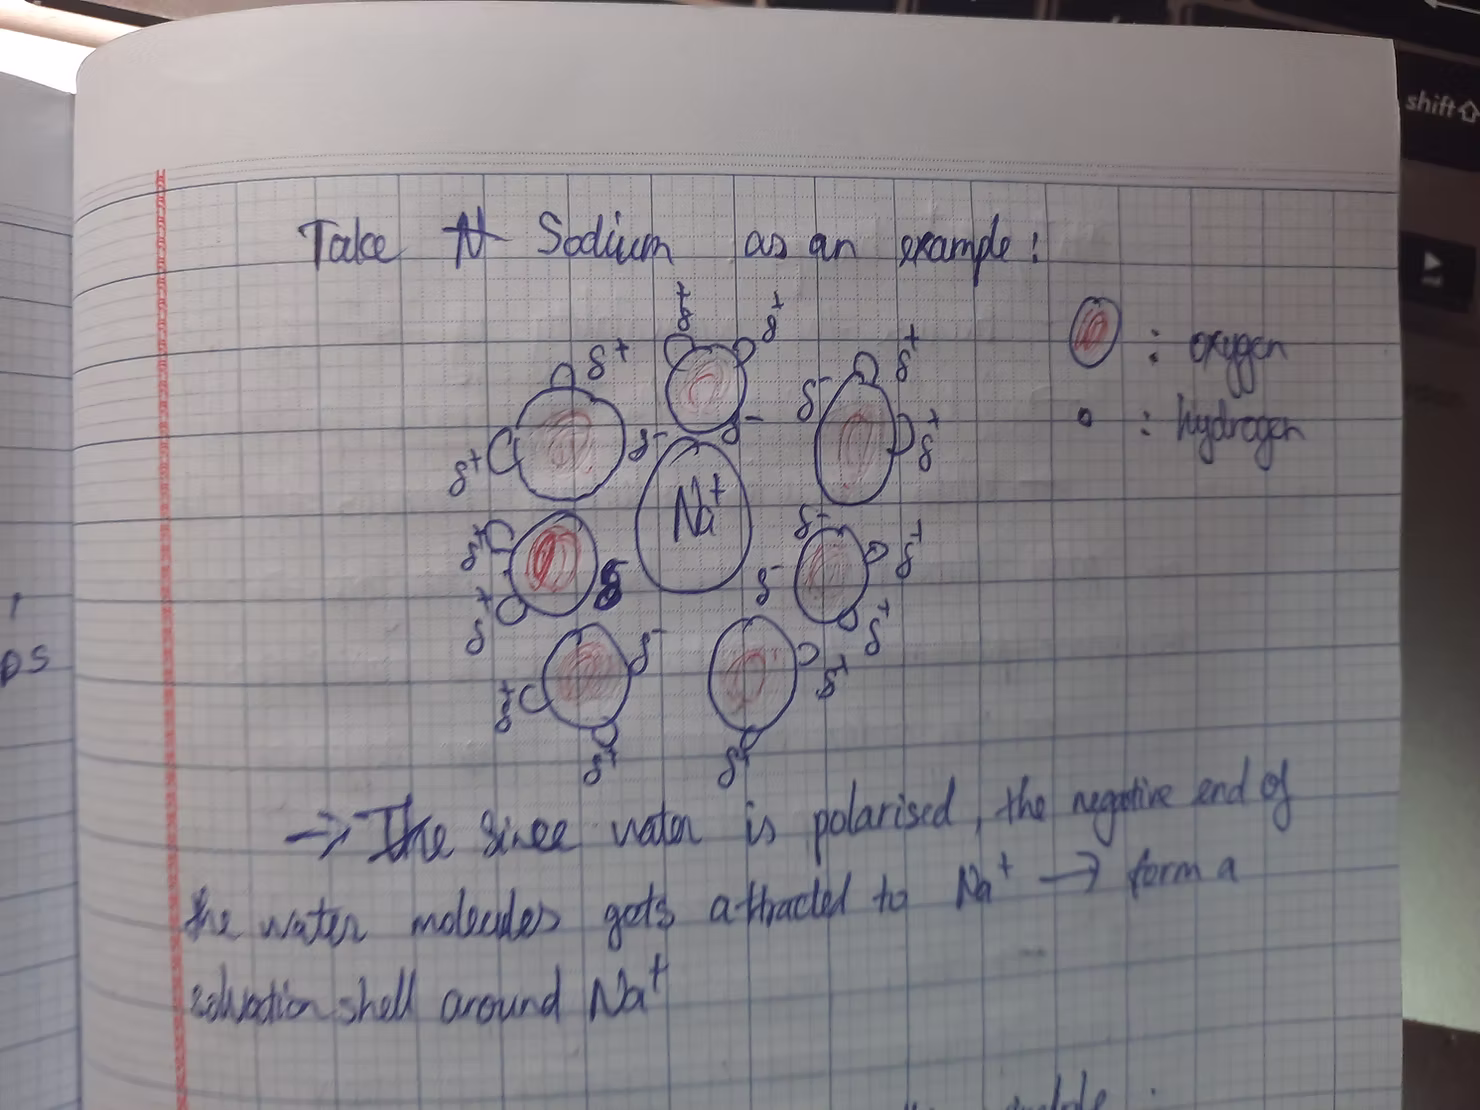 shift
Take N Sodium as an example:
δ+ δ+
δ+ δ+
δ- : oxygen
δ- δ+
δ+ δ- : hydrogen
Na+
δ+ δ- δ+
δ+ δ δ-
δ+ δ- δ+
δ+ δ+
δ+ δ+
→ The Since water is polarised, the negative end of
the water molecules gets attracted to Na+ → form a
solvation shell around Na+